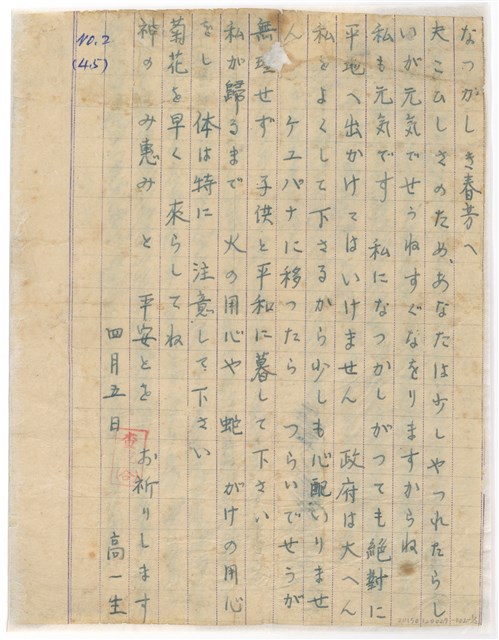 なつかしき春芳へ
夫こひしさのため、あなたは少しやつれたらし
いが元気でせうねすぐなをりますからね
私も元気です 私になつかしがつても絶對に
平地へ出かけてはいけません 政府は大へん
私をよくして下さるから少しも心配いりませ
ん ケユパナに移つたら つらいでせうが
無理せず 子供と平和に暮して下さい
私が歸るまで 火の用心や 蛇 がけの用心
をし 体は特に 注意して下さい
菊花を早く 来らしてね
神の み惠み と 平安とを お祈りします
四月五日 高一生
NO.2
(4.5)